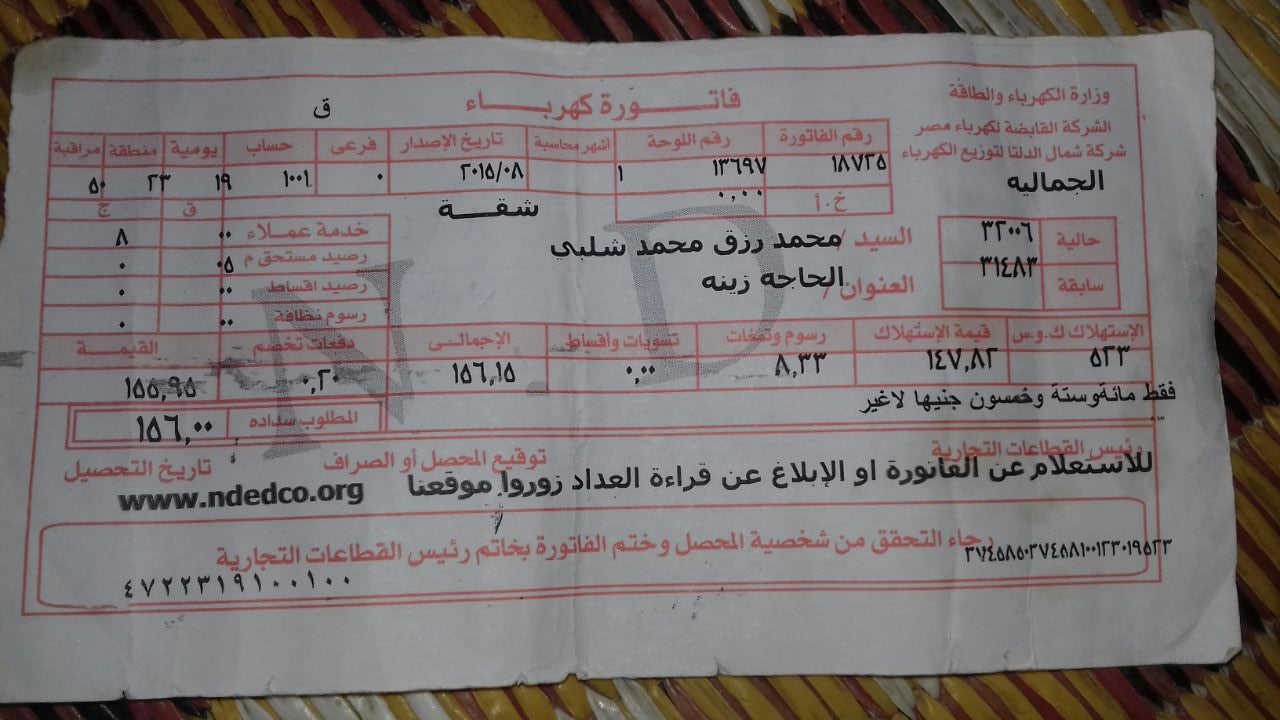 وزارة الكهرباء والطاقة
الشركة القابضة لكهرباء مصر
شركة شمال الدلتا لتوزيع الكهرباء
الجماليه
فاتـــورة كهربـــاء
ق
رقم الفاتورة رقم اللوحة اشهر محاسبة تاريخ الإصدار فرعى حساب يومية منطقة مراقبة
١٨٧٢٥ ١٣٦٩٧ ١ ٢٠١٥/٠٨ ٠ ١٠٠١ ١٩ ٢٣ ٥٠
خ.أ ٠,٠٠
ق ج
شقـــة
حالية ٣٢٠٠٦
سابقة ٣١٤٨٣
السيد / محمد رزق محمد شلبي
العنوان / الحاجه زينه
خدمة عملاء ٠٠ ٨
رصيد مستحق م ٠٥ ٠
رصيد اقساط ٠٠ ٠
رسوم نظافة ٠٠ ٠
الإستهلاك ك.و.س قيمة الإستهلاك رسوم وتمغات تسويات وأقساط الإجمالـى دفعات تخصم القيمـــة
٥٢٣ ١٤٧,٨٢ ٨,٣٣ ٠,٠٠ ١٥٦,١٥ ٠,٢٠ ١٥٥,٩٥
فقط مائةوستة وخمسون جنيها لاغير
المطلوب سداده ١٥٦,٠٠
رئيس القطاعات التجارية توقيع المحصل أو الصراف تاريخ التحصيل
للاستعلام عن الفاتورة او الإبلاغ عن قراءة العداد زوروا موقعنا www.ndedco.org
رجاء التحقق من شخصية المحصل وختم الفاتورة بخاتم رئيس القطاعات التجارية
٣٧٤٥٨٥٠٢٧٤٥٨١٠٠١٢٣٠١٩٥٢٣
٤٧٢٢٣١٩١٠٠١٠٠
N.D